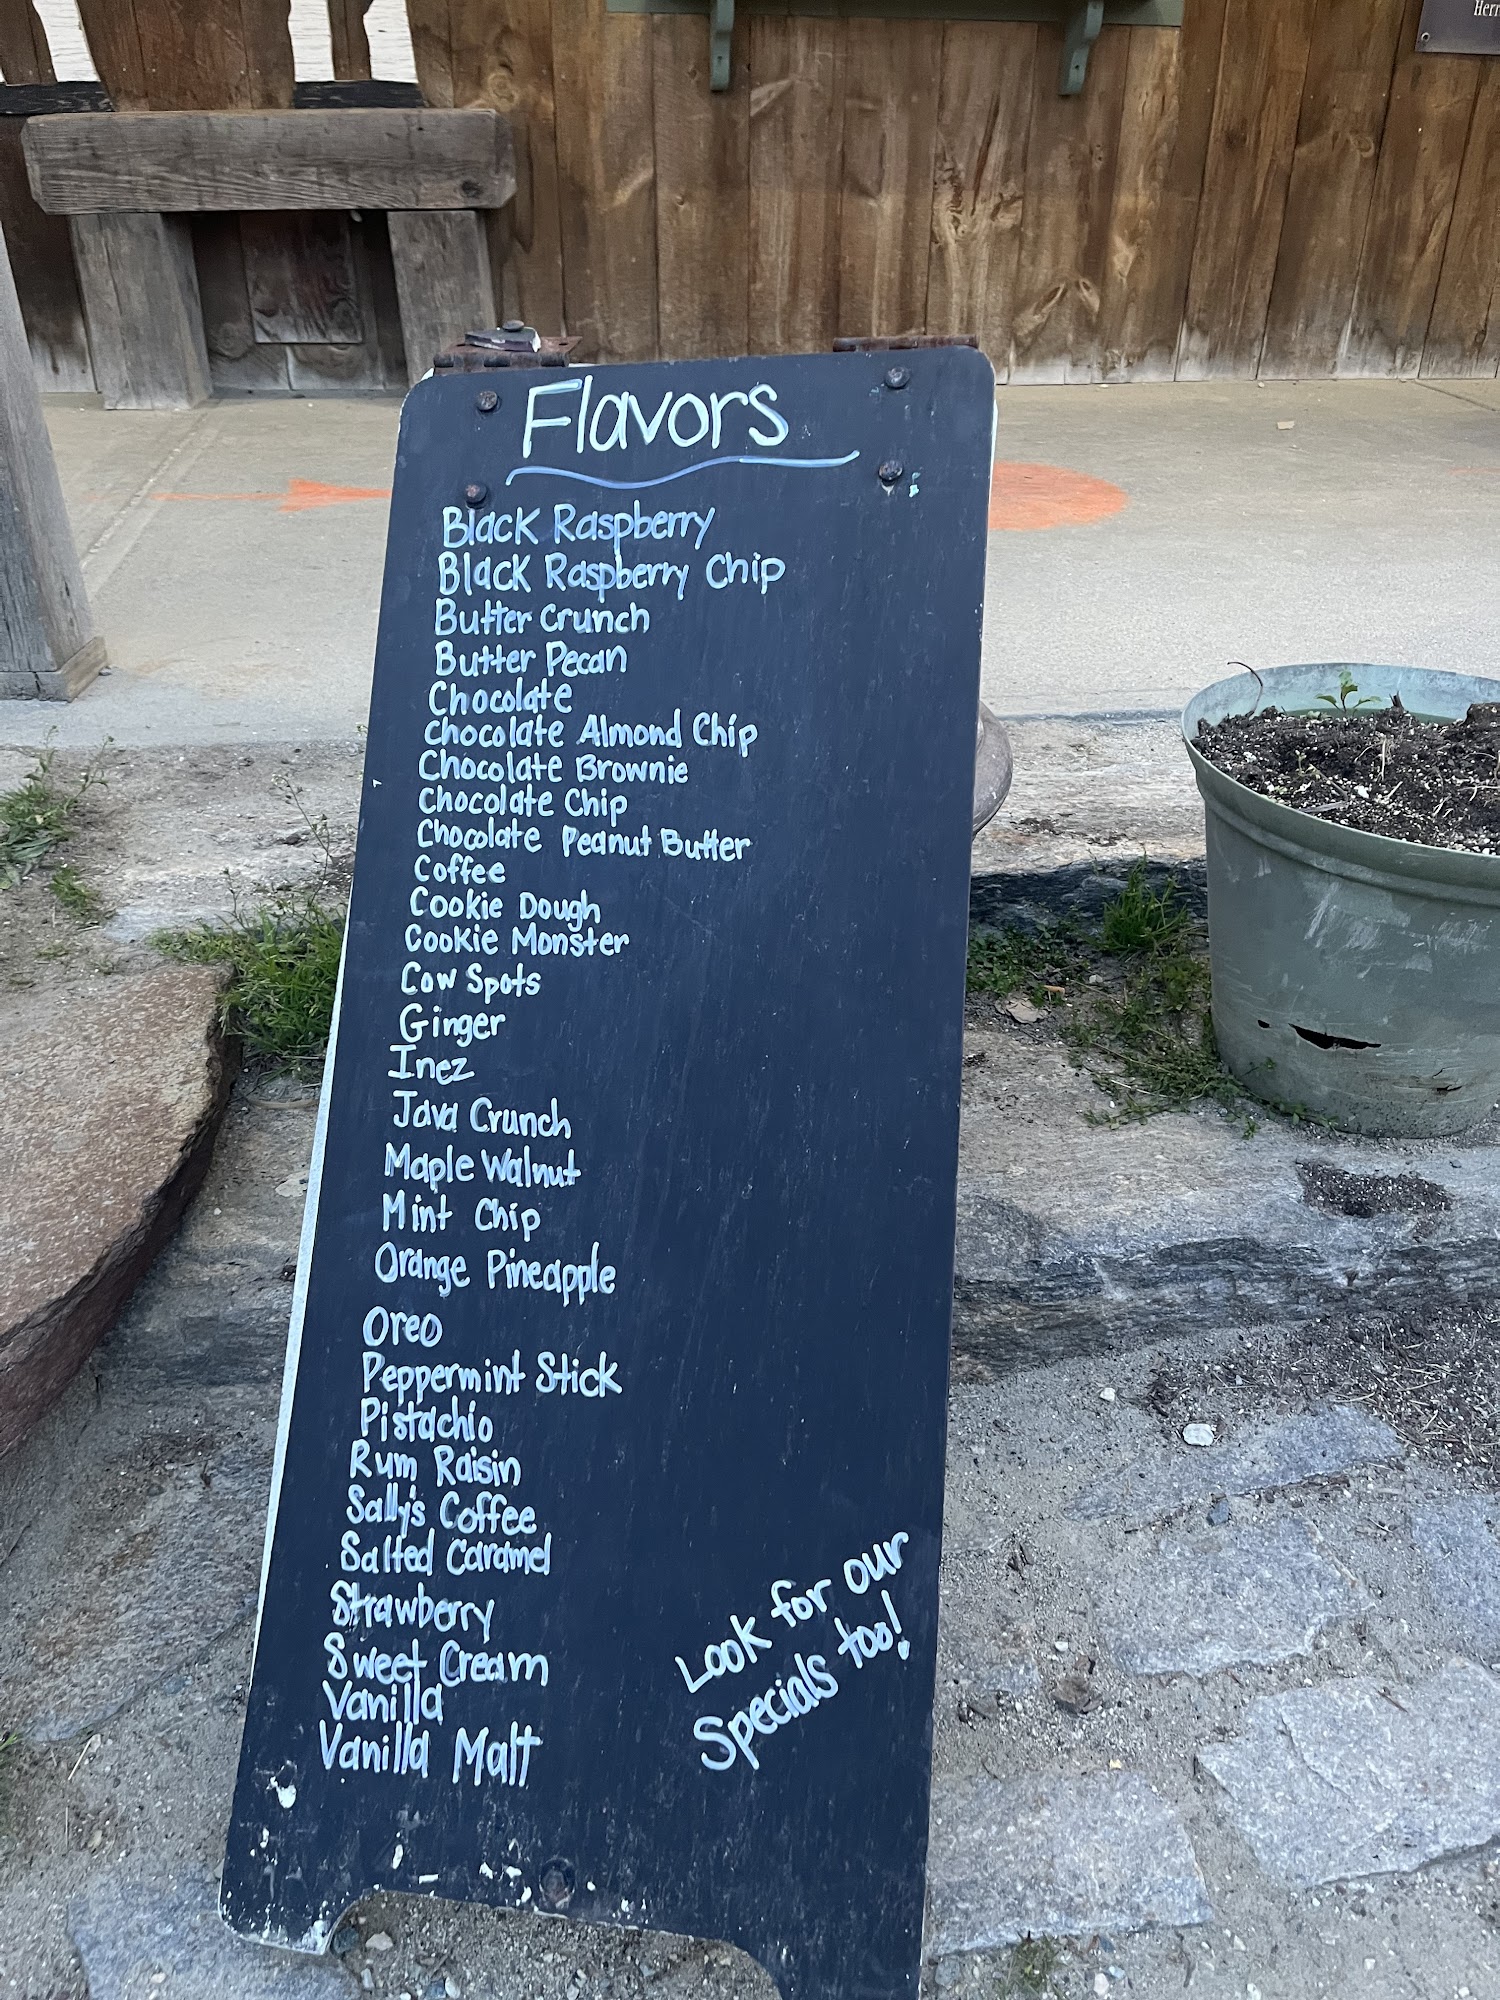 Herr
Flavors
Black Raspberry
Black Raspberry Chip
Butter Crunch
Butter Pecan
Chocolate
Chocolate Almond Chip
Chocolate Brownie
Chocolate Chip
Chocolate Peanut Butter
Coffee
Cookie Dough
Cookie Monster
Cow Spots
Ginger
Inez
Java Crunch
Maple Walnut
Mint Chip
Orange Pineapple
Oreo
Peppermint Stick
Pistachio
Rum Raisin
Sally's Coffee
Salted Caramel
Strawberry
Sweet Cream
Vanilla
Vanilla Malt
Look for our
Specials too!